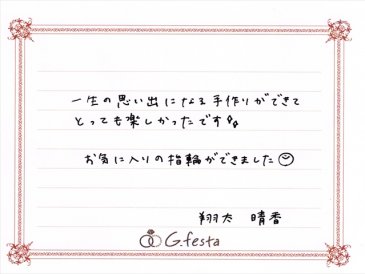 一生の思い出になる手作りができて
とっても楽しかったです
お気に入りの指輪ができました
翔太 晴香
G.festa